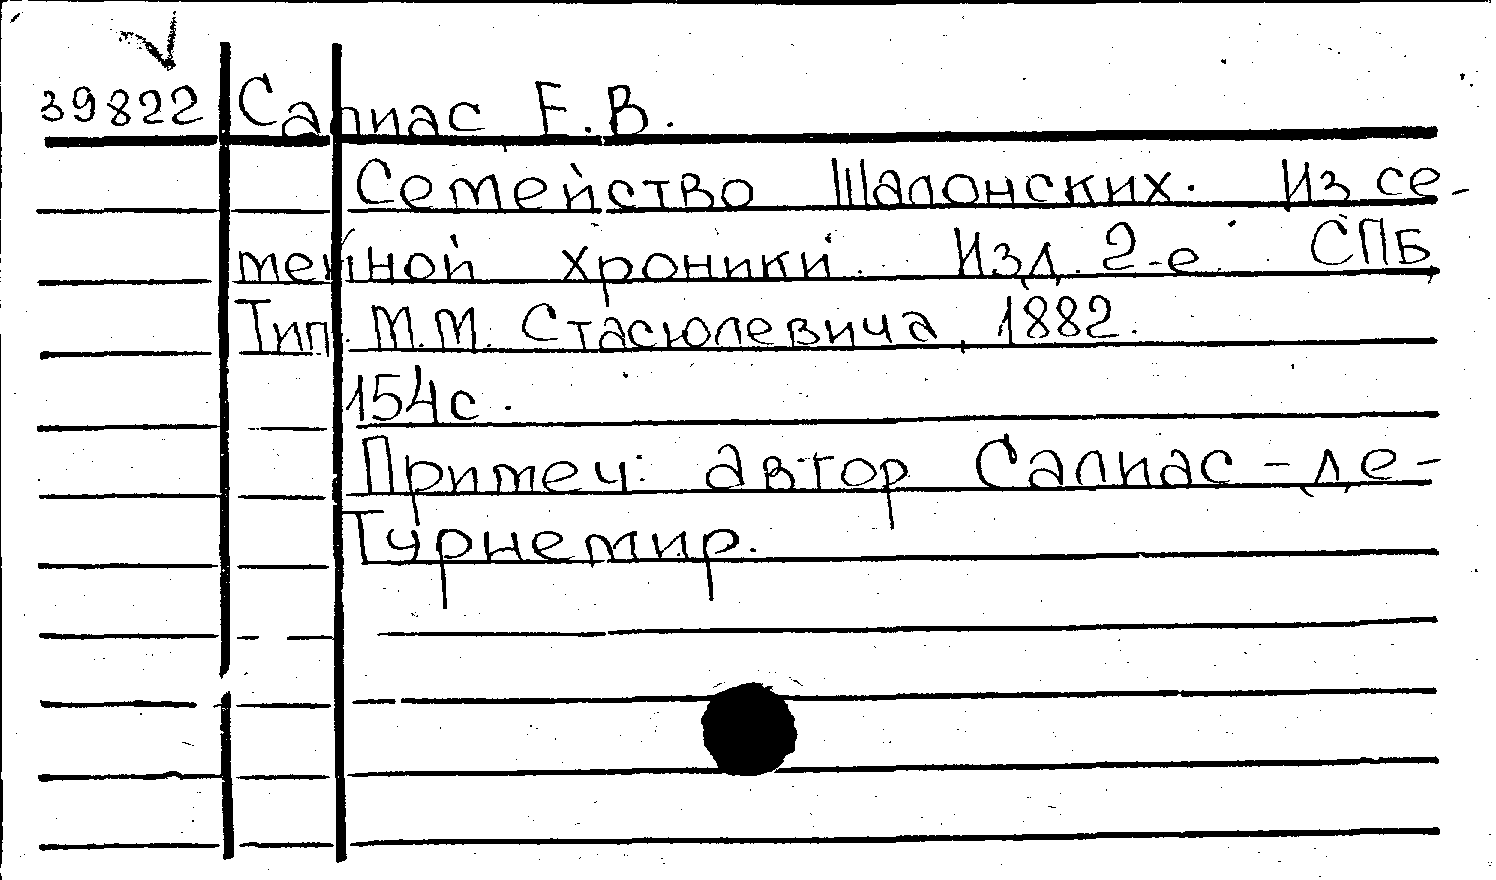 39822 Салиас Е.В.
Семейство Шалонских. Из се-
мейной хроники. Изд. 2-е. СПБ,
Тип. М.М. Стасюлевича, 1882.
154с.
Примеч: автор Салиас-де-
Турнемир.